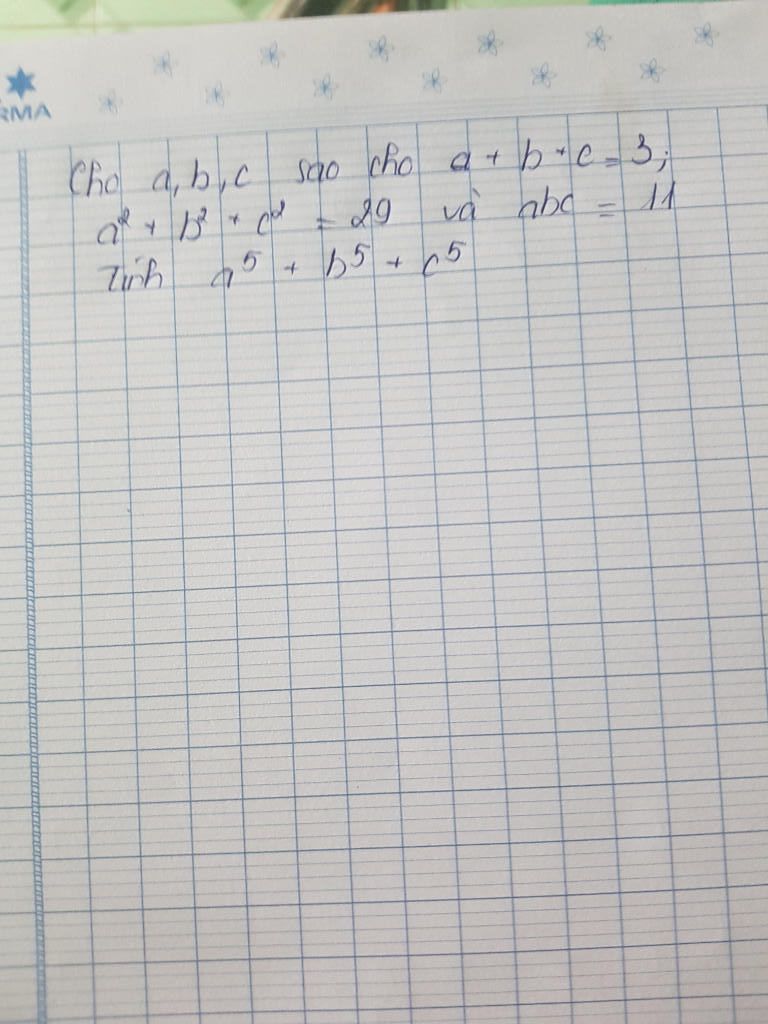 RMA
Cho a, b, c sao cho a + b + c = 3;
a² + b² + c² = 29 và abc = 11
Tính a⁵ + b⁵ + c⁵